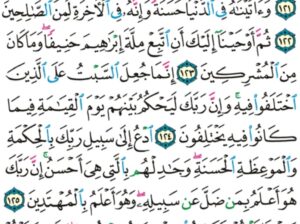 ١٢١ وَءَاتَيْنَٰهُ فِي الدُّنْيَا حَسَنَةً وَإِنَّهُ فِي الْآخِرَةِ لَمِنَ الصَّٰلِحِينَ
١٢٢ ثُمَّ أَوْحَيْنَا إِلَيْكَ أَنِ اتَّبِعْ مِلَّةَ إِبْرَٰهِيمَ حَنِيفًا وَمَا كَانَ
مِنَ الْمُشْرِكِينَ ١٢٣ إِنَّمَا جُعِلَ السَّبْتُ عَلَى الَّذِينَ
اخْتَلَفُوا فِيهِ وَإِنَّ رَبَّكَ لَيَحْكُمُ بَيْنَهُمْ يَوْمَ الْقِيَٰمَةِ فِيمَا
كَانُوا فِيهِ يَخْتَلِفُونَ ١٢٤ ادْعُ إِلَىٰ سَبِيلِ رَبِّكَ بِالْحِكْمَةِ
وَالْمَوْعِظَةِ الْحَسَنَةِ وَجَٰدِلْهُم بِالَّتِي هِيَ أَحْسَنُ إِنَّ رَبَّكَ
هُوَ أَعْلَمُ بِمَن ضَلَّ عَن سَبِيلِهِ وَهُوَ أَعْلَمُ بِالْمُهْتَدِينَ ١٢٥